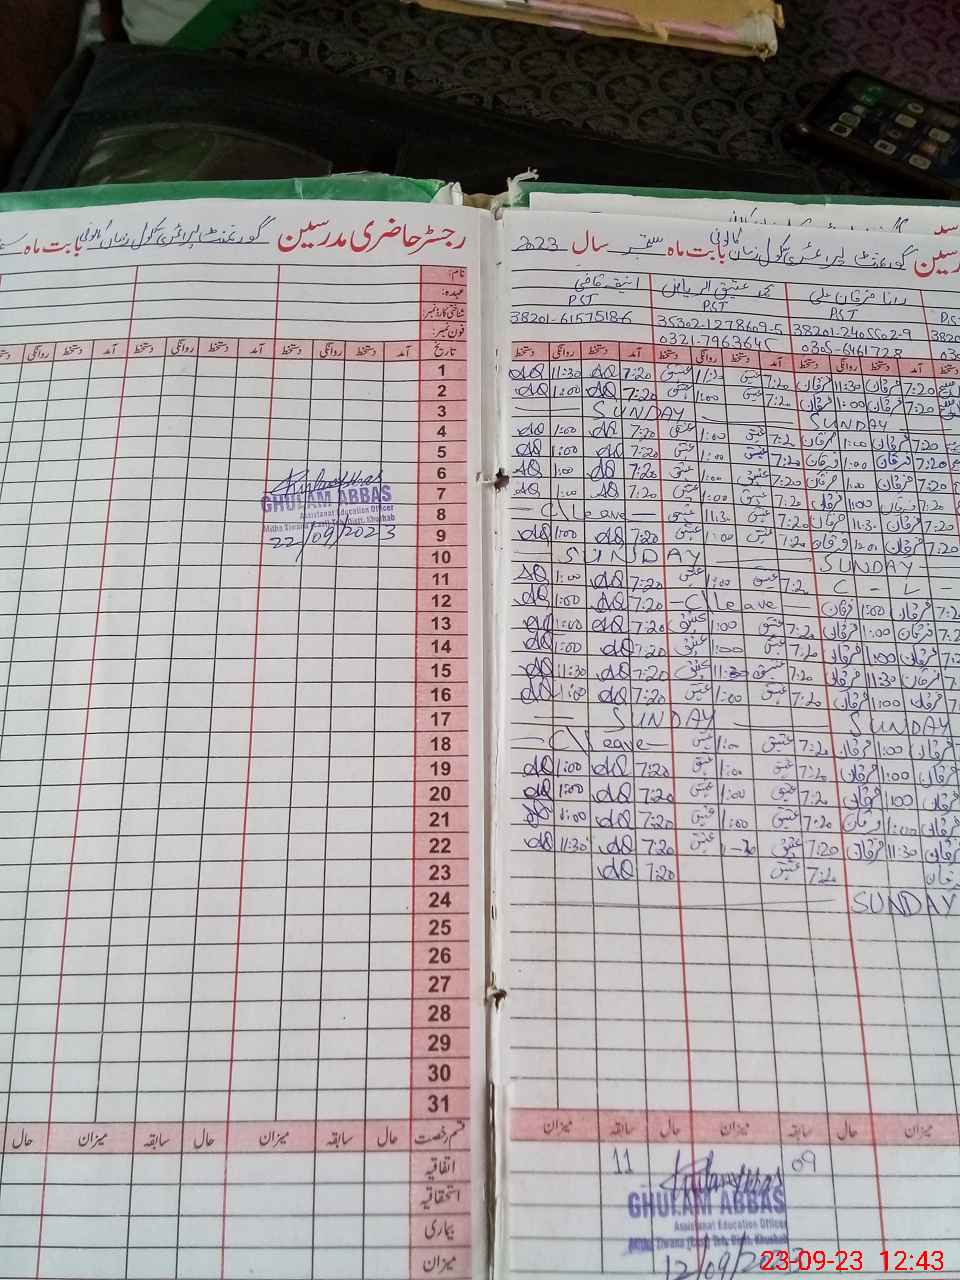 رجسٹر حاضری مدرسین گورنمنٹ پرائمری سکول زماں کالونی بابت ماہ
نام:
عہدہ:
شناختی کارڈ نمبر:
فون نمبر:
تاریخ آمد دستخط روانگی دستخط آمد دستخط روانگی دستخط آمد دستخط روانگی دستخط
1
2
3
4
5
6
7
GHULAM ABBAS
8
Assistanat Education Officer
Mitha Tiwana (East) Teh. Distt. Khushab
9
22/09/2023
10
11
12
13
14
15
16
17
18
19
20
21
22
23
24
25
26
27
28
29
30
31
قسم رخصت حال سابقہ میزان حال سابقہ میزان حال
اتفاقیہ
استحقاقیہ
بیماری
میزان
رسین گورنمنٹ پرائمری سکول زماں کالونی بابت ماہ ستمبر سال 2023
رانا فرقان علی محمد عتیق الریاض
PST PST PST
38201-2405502-9 35302-1278609-5 38201-6157518-6
0305-6461728 0321-7963645
آمد دستخط روانگی دستخط آمد دستخط روانگی دستخط آمد دستخط روانگی دستخط
7:20 فرقان 11:30 فرقان 7:20 عتیق 11:30 عتیق 7:20 AQ 11:30 AQ
7:20 فرقان 1:00 فرقان 7:20 عتیق 1:00 عتیق 7:20 AQ 1:00 AQ
SUNDAY SUNDAY
7:20 فرقان 1:00 فرقان 7:20 عتیق 1:00 عتیق 7:20 AQ 1:00 AQ
7:20 فرقان 1:00 فرقان 7:20 عتیق 1:00 عتیق 7:20 AQ 1:00 AQ
7:20 فرقان 1:00 فرقان 7:20 عتیق 1:00 عتیق 7:20 AQ 1:00 AQ
7:20 فرقان 1:00 فرقان 7:20 عتیق 1:00 عتیق 7:20 AQ 1:00 AQ
7:20 فرقان 11:30 فرقان 7:20 عتیق 11:30 عتیق C\Leave
7:20 فرقان 1:00 فرقان 7:20 عتیق 1:00 عتیق 7:20 AQ 1:00 AQ
SUNDAY SUNDAY
C - L - 7:20 عتیق 1:00 عتیق 7:20 AQ 1:00 AQ
7:20 فرقان 1:00 فرقان C\Leave 7:20 AQ 1:00 AQ
7:20 فرقان 1:00 فرقان 7:20 عتیق 1:00 عتیق 7:20 AQ 1:00 AQ
7:20 فرقان 1:00 فرقان 7:20 عتیق 1:00 عتیق 7:20 AQ 1:00 AQ
7:20 فرقان 11:30 فرقان 7:20 عتیق 11:30 عتیق 7:20 AQ 11:30 AQ
7:20 فرقان 1:00 فرقان 7:20 عتیق 1:00 عتیق 7:20 AQ 1:00 AQ
SUNDAY SUNDAY
فرقان 1:00 فرقان 7:20 عتیق 1:00 عتیق C\Leave
فرقان 1:00 فرقان 7:20 عتیق 1:00 عتیق 7:20 AQ 1:00 AQ
فرقان 1:00 فرقان 7:20 عتیق 1:00 عتیق 7:20 AQ 1:00 AQ
فرقان 1:00 فرقان 7:20 عتیق 1:00 عتیق 7:20 AQ 1:00 AQ
فرقان 11:30 فرقان 7:20 عتیق عتیق 7:20 AQ 11:30 AQ
فرقان 7:20 عتیق 7:20 AQ
SUNDAY
میزان حال سابقہ میزان حال سابقہ میزان
09 11
GHULAM ABBAS
Assistanat Education Officer
Mitha Tiwana (East) Teh. Distt. Khushab
12/09/2023
23-09-23 12:43